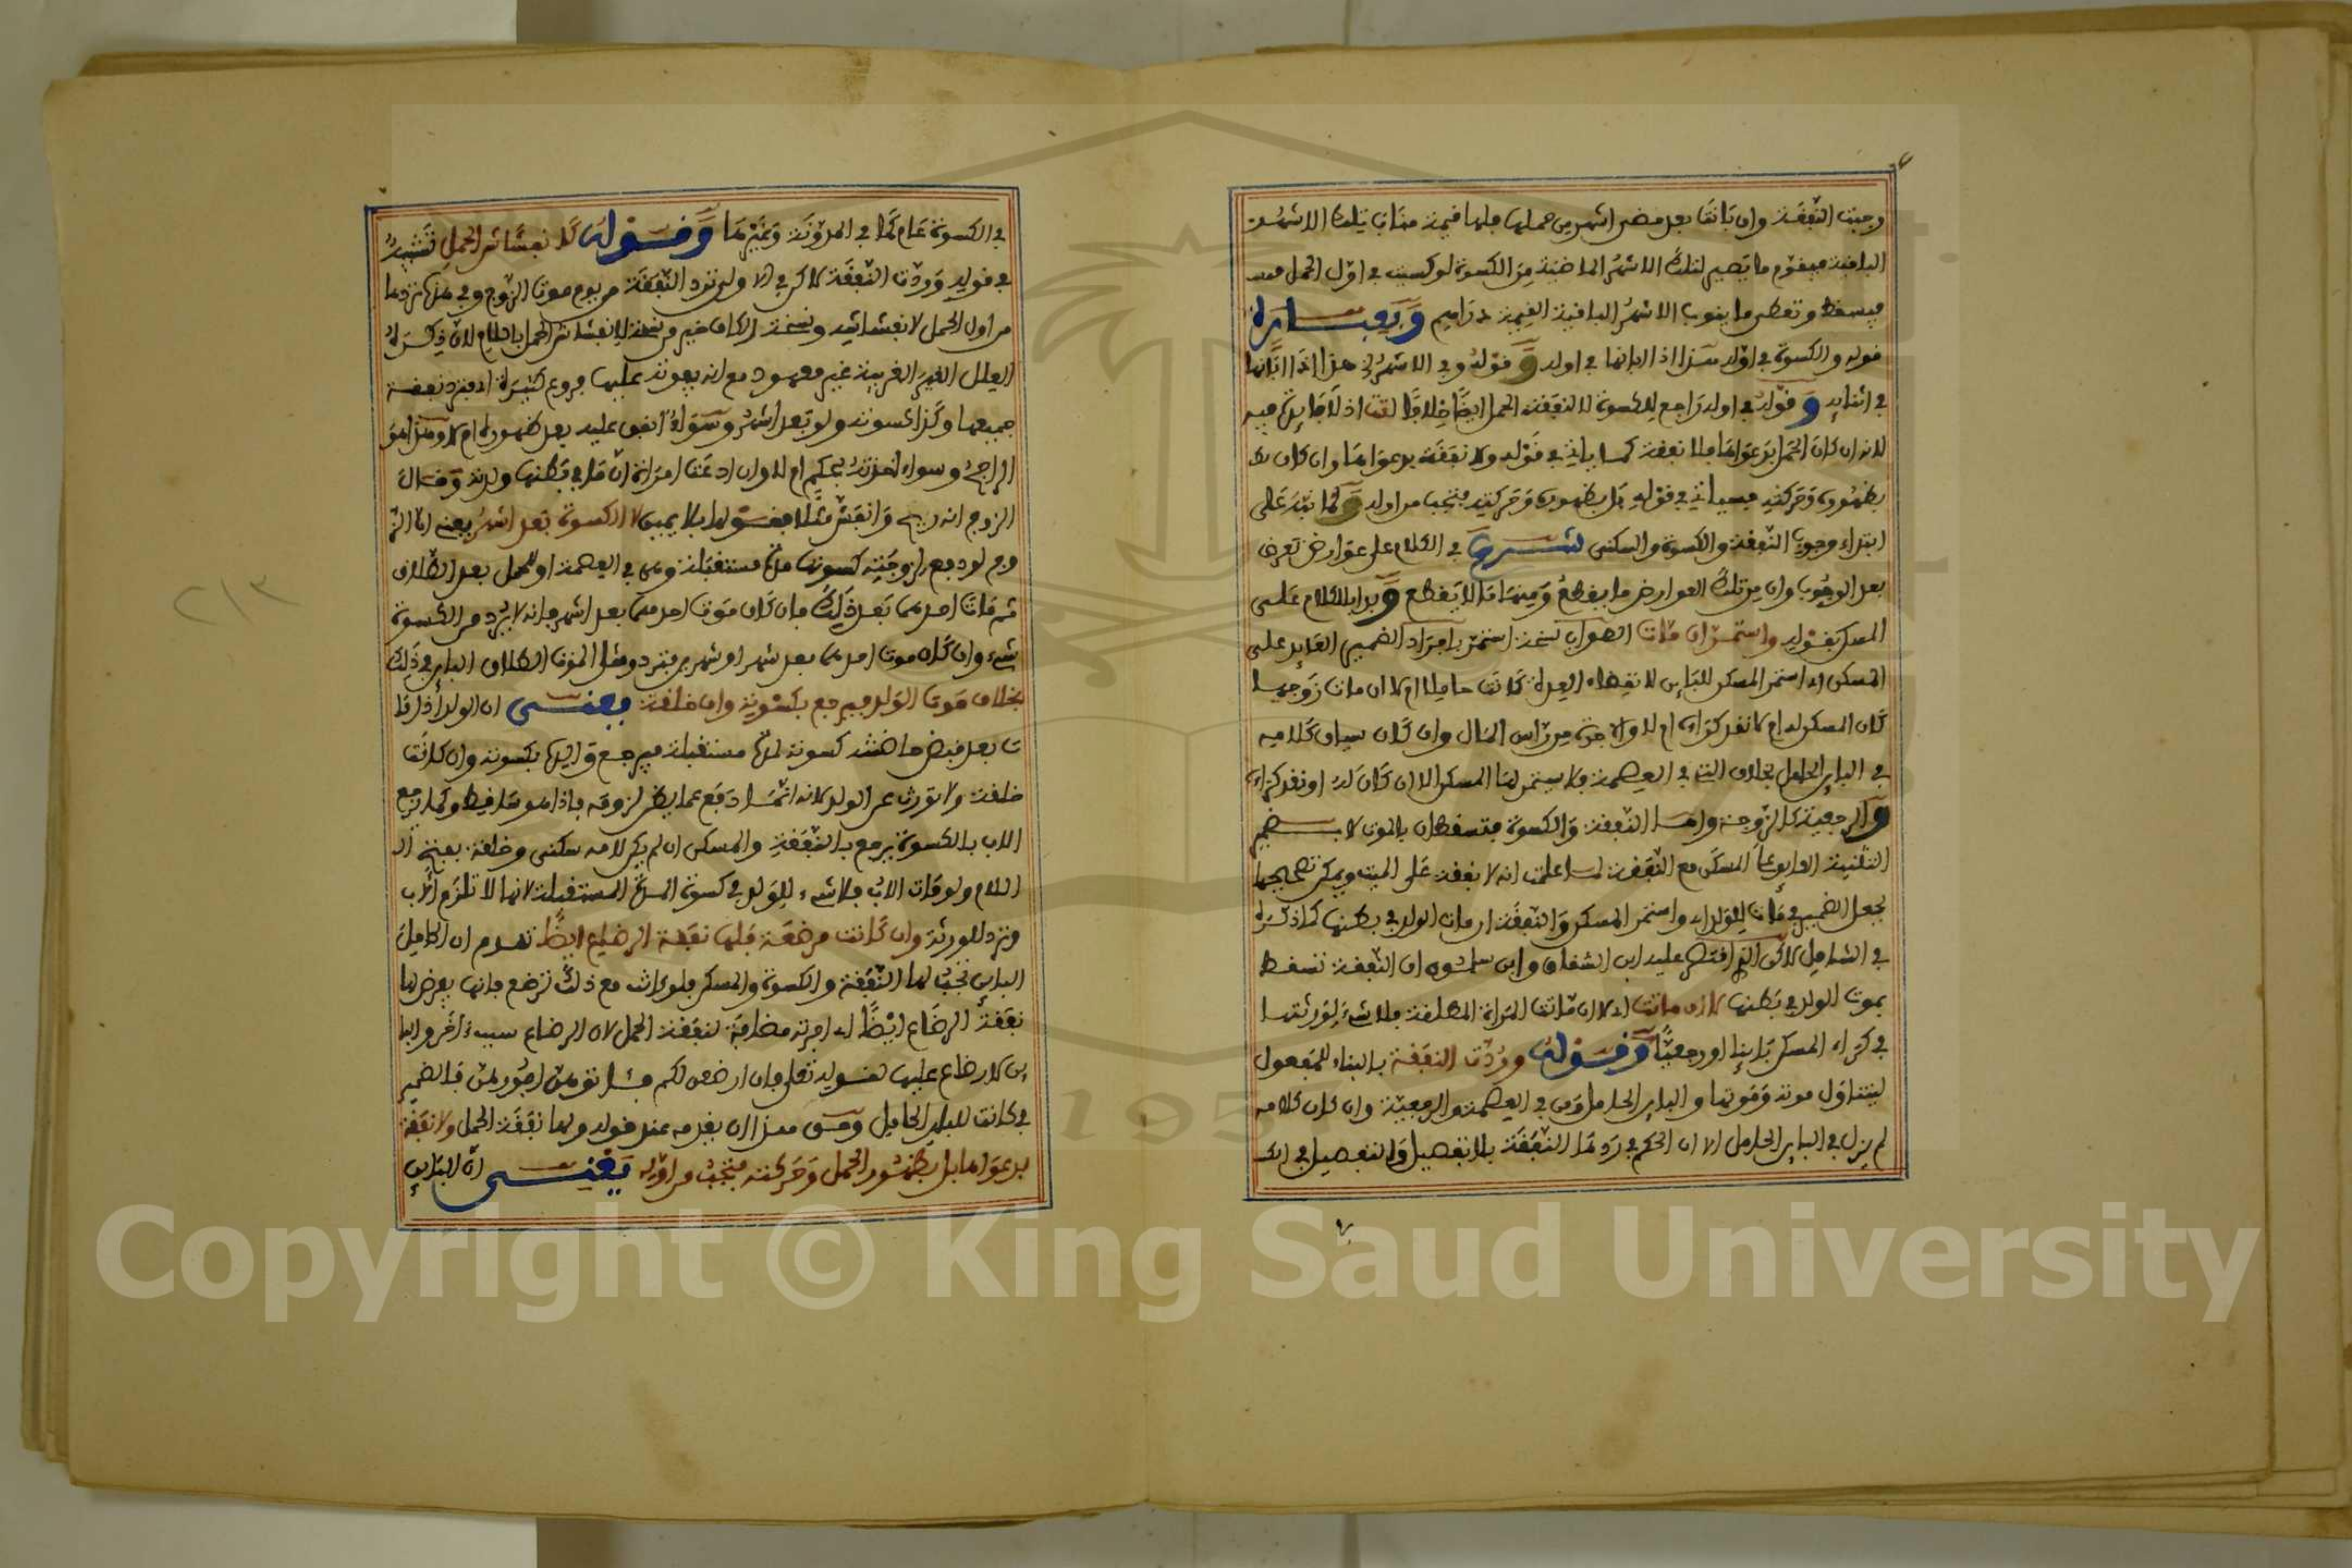 وجبت النفقة وان بانت بعد مضي اشهر من حملها فلها قيمة مناب تلك الاشهر
الباقية فيقوم ما يصير لتلك الاشهر الماضية من الكسوة لو كسيت في اول الحمل
فيسقط وتعطى ما ينوب الاشهر الباقية القيمة دراهم وبعبارة
قوله والكسوة في اوله هذا اذا ابانها في اوله وقوله وفي الاشهر الخ هذا اذا ابانها
في اثنايه وقوله في اوله راجع للكسوة لا لنفقة الحمل ايضا خلافا لتت اذ لا فايدة فيه
لانه ان كان الحمل بدعواها فلا نفقة كما ياتي في قوله ولا نفقة بدعواها وان كان
بظهوره وحركته فسياتي في قوله بل بظهوره وحركته فتجب من اوله وكما نبه على
ابتداء وجوب النفقة والكسوة والسكنى شرع في الكلام على عوارض تعرض
بعد الوجوب وان من تلك العوارض ما يقطع ومنها ما لا يقطع وبدا بالكلام على
المسكن بقوله واستمر ان مات الصواب نسخة استمر بافراد الضمير العايد على
المسكن اي استمر المسكن للباين لانقضاء العدة كانت حاملا ام لا ان مات زوجها
كان المسكن له ام لا نقد كراءه ام لا والاجرة من راس المال وان كان سياق كلامه
في الباين الحامل بخلاف التي في العصمة فلا يستمر لها المسكن الا ان كان له او نقد كراءه
والرجعية كالزوجة واما النفقة والكسوة فتسقطان بالموت لا بضمير
التثنية العايد على المسكن مع النفقة لما علمت انه لا نفقة على الميت ويمكن تصحيحها
بجعل الضمير في مات للولد اي واستمر المسكن والنفقة ان مات الولد في بطنها كما ذكره
في الشامل لاكن الذي اقتصر عليه ابن الشقاق وابن سلمون ان النفقة تسقط
بموت الولد في بطنها لا ان ماتت اي لا ان ماتت المراة المطلقة فلا شيء لورثتها
في كراء المسكن باينا او رجعيا وقوله وردت النفقة بالبناء للمفعول
ليتناول موته وموتها والباين الحامل ومن في العصمة والرجعية وان كان كلامه
لم يزل في الباين الحامل الا ان الحكم في رد النفقة بلا تفصيل والتفصيل في الكـ
في الكسوة عام كما في المدونة وغيرها وقوله كانفشاش الحمل تشبيه
في قوله وردت النفقة لاكن في الاولى ترد النفقة من يوم موت الزوج وفي هذه تردها
من اول الحمل لانفشاشه ونسخة الكاف خير من نسخة لا نفشاش الحمل باللام لان ذكره
العلل الغير الغريبة غير معهود مع انه يفوته عليها فروع كثيرة اي فترد نفقة
جميعها وكذا كسوته ولو بعد اشهر وسواء انفق عليه بعد ظهوره ام لا وهذا هو
الراجح وسواء اخذته بحكم ام لا وان ادعت امراة ان ما في بطنها ولدته وقال
الزوج انه ريح وانفش مثلا فقولها بلا يمين لا الكسوة بعد اشهر يعني ان الز
وج لو دفع لزوجته كسوتها مدة مستقبلة وهي في العصمة او للحمل بعد الطلاق
ثم مات احدهما بعد ذلك فان كان موت احدهما بعد اشهر فانه لا يرد من الكسوة
شيء وان كان موت احدهما بعد شهر او شهرين فترد ومثل الموت الطلاق الباين في ذلك
بخلاف موت الولد فيرجع بكسوته وان خلقة يعني ان الولد اذا ما
ت بعد قبض حاضنته كسوته لمدة مستقبلة فيرجع والده بكسوته وان كانت
خلقة ولا تورث عن الولد لانه انما دفع عما يظن لزومه فاذا هو ساقط وكما يرجع
الاب بالكسوة يرجع بالنفقة والمسكن ان لم يكن لامه سكنى وخلقة بفتح الـ
اللام ولو مات الاب فلا شيء للولد في كسوة المدة المستقبلة لانها لا تلزم الاب
وترد للورثة وان كانت مرضعة فلها نفقة الرضاع ايضا تقدم ان الحامل
الباين تجب لها النفقة والكسوة والمسكن فلو كانت مع ذلك ترضع فانها يفرض لها
نفقة الرضاع ايضا اي اجرته مضافة لنفقة الحمل لان الرضاع سبب اخر والبا
ين لا رضاع عليها لقوله تعلى فان ارضعن لكم فئاتوهن اجورهن فالضمير
في كانت للباين الحامل وحق هذا ان يقدمه عند قوله ولها نفقة الحمل ولا نفقة
بدعواها بل بظهور الحمل وحركته فتجب من اوله يعني ان الباين
٢١٣
Copyright © King Saud University
195